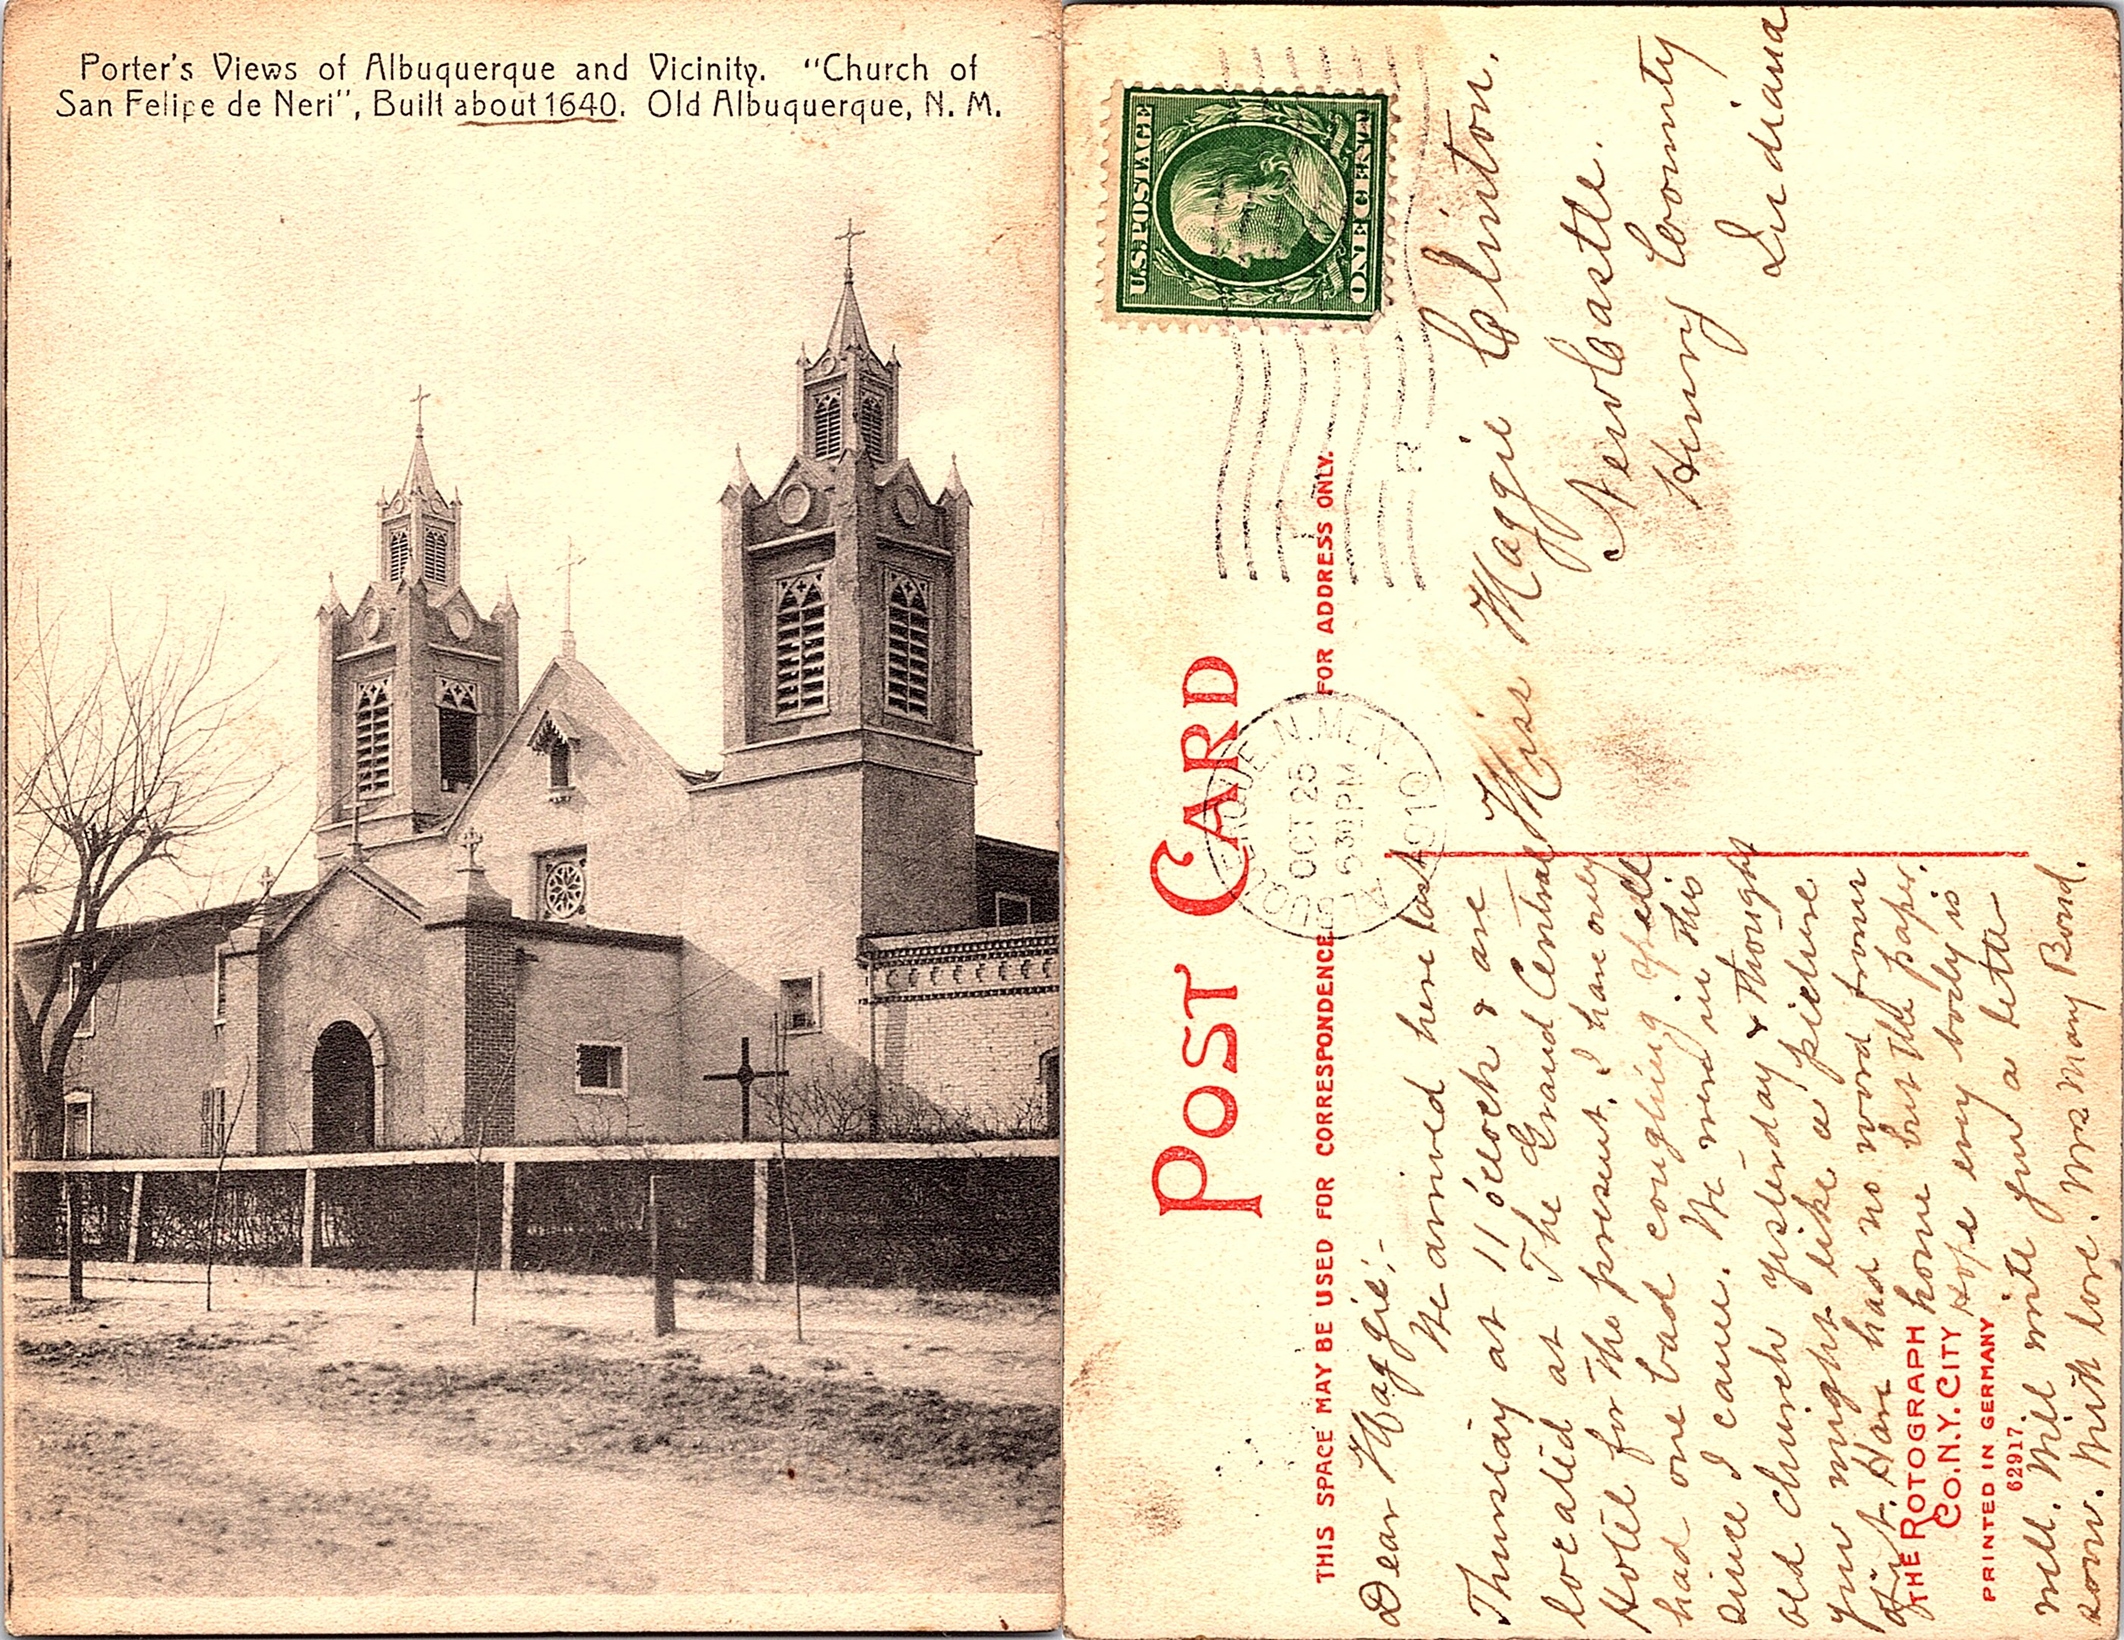 Porter's Views of Albuquerque and Vicinity. "Church of
San Felipe de Neri", Built about 1640. Old Albuquerque, N. M.
POST CARD
THIS SPACE MAY BE USED FOR CORRESPONDENCE
FOR ADDRESS ONLY.
U.S. POSTAGE
ONE CENT
ALBUQUERQUE, N. MEX.
OCT 25
630 PM
1910
R
Dear Maggie:-
We arrived here last
Thursday at 11 o'clock & are
located at The Grand Central
Hotel for the present. I have only
had one bad coughing spell
since I came. We were in this
old church yesterday & thought
you might like a picture
of it. Have had no word from
home but the paper.
Hope every body is
well. Will write you a letter
soon. With love. Mrs Mary Bond.
Miss Maggie Clinton.
New Castle.
Henry Coounty
Indiana
THE ROTOGRAPH
CO. N.Y. CITY
PRINTED IN GERMANY
62917